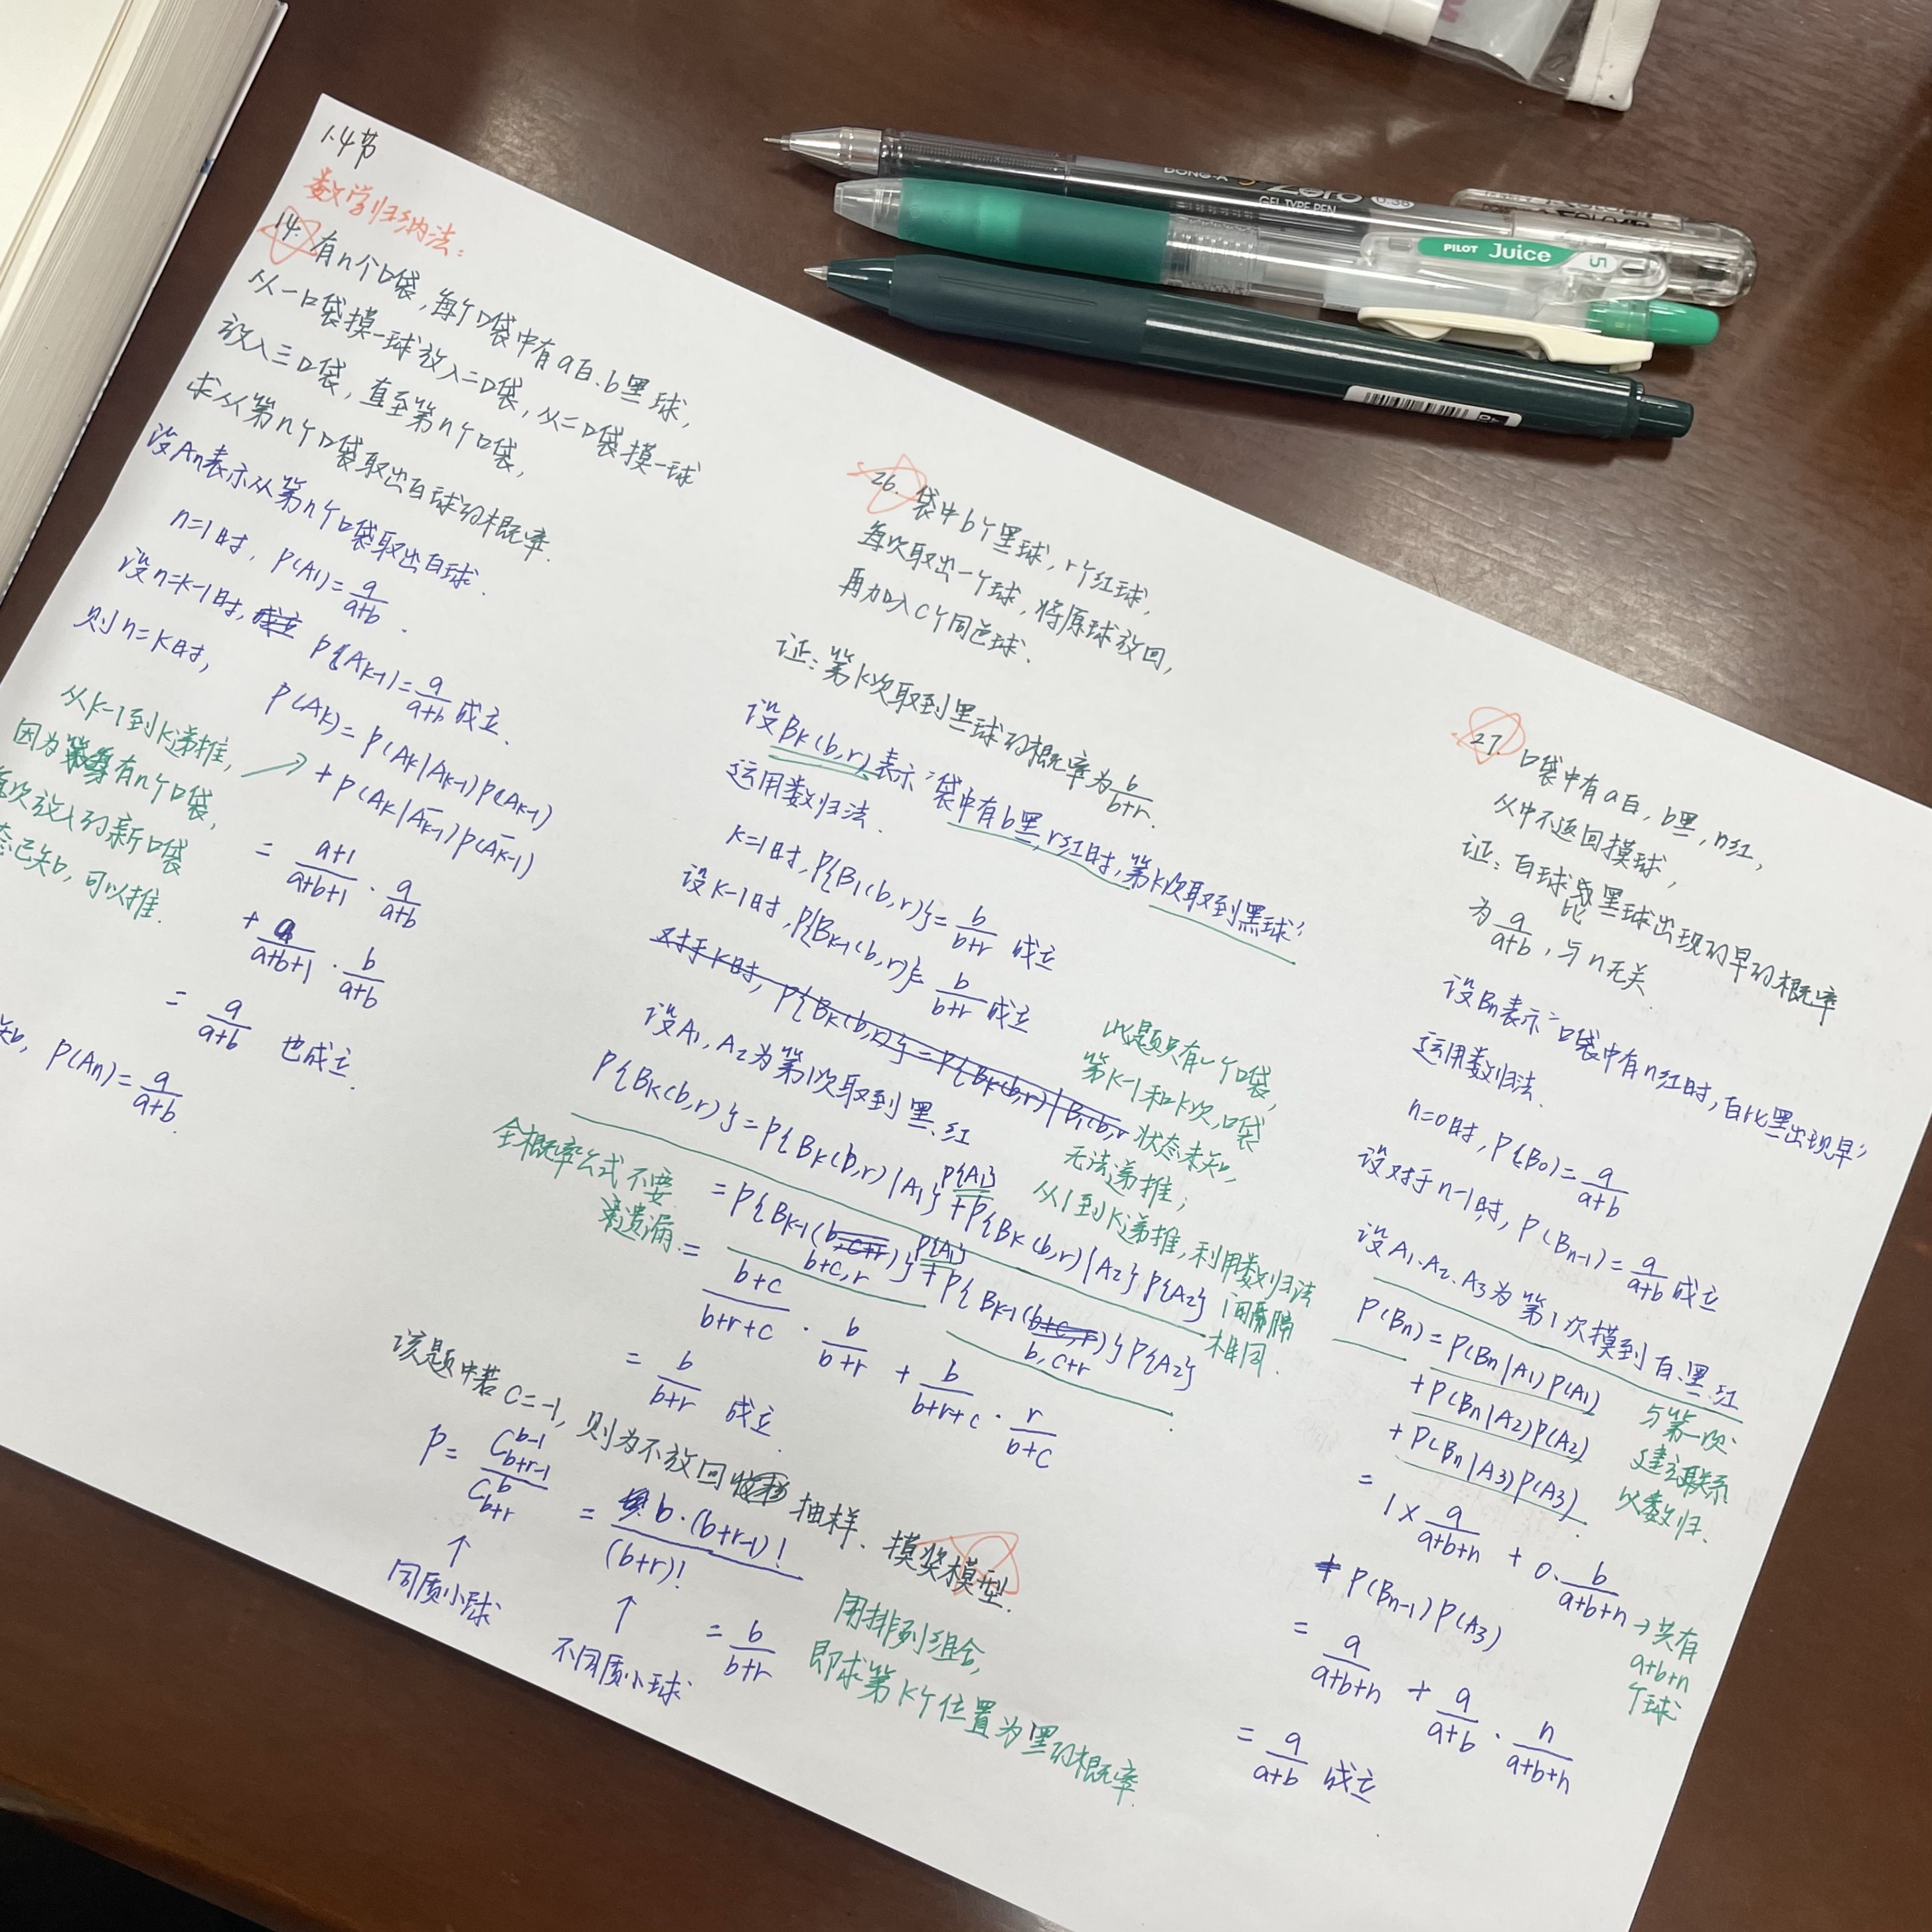 1.4节
数学归纳法：
14. 有n个口袋，每个口袋中有a白、b黑球，
从一口袋摸一球放入二口袋，从二口袋摸一球
放入三口袋，直至第n个口袋，
求从第n个口袋取出白球的概率.
设An表示从第n个口袋取出白球.
n=1时，P(A1)=a/(a+b).
设n=k-1时，P{Ak-1}=a/(a+b) 成立.
则n=k时，
P(Ak)=P(Ak|Ak-1)P(Ak-1)
+P(Ak|A̅k-1)P(A̅k-1)
= (a+1)/(a+b+1) · a/(a+b)
+ a/(a+b+1) · b/(a+b)
= a/(a+b) 也成立.
知, P(An)=a/(a+b).
从k-1到k递推，
因为有n个口袋，
每次放入的新口袋
态已知，可以推.
26. 袋中b个黑球，r个红球，
每次取出一个球，将原球放回，
再加入c个同色球.
证：第k次取到黑球的概率为b/(b+r).
设Bk(b,r)表示“袋中有b黑，r红时，第k次取到黑球”
运用数归法.
k=1时，P{B1(b,r)}=b/(b+r) 成立
设k-1时，P{Bk-1(b,r)}=b/(b+r) 成立
对于k时，P{Bk(b,r)}=P{Bk(b,r)|B1(b,r
设A1，A2为第1次取到黑、红
P{Bk(b,r)}=P{Bk(b,r)|A1}P{A1}+P{Bk(b,r)|A2}P{A2}
=P{Bk-1(b+c,r)}P{A1}+P{Bk-1(b,c+r)}P{A2}
= (b+c)/(b+r+c) · b/(b+r) + b/(b+r+c) · r/(b+c)
= b/(b+r) 成立.
全概率公式不要
遗漏.
此题只有一个口袋，
第k-1和k次，口袋
状态未知，
无法递推；
从1到k递推，利用数归法
间隔
相同.
该题中若c=-1，则为不放回抽样、摸奖模型.
P= C_{b+r-1}^{b-1}/C_{b+r}^{b} = b·(b+r-1)!/(b+r)! = b/(b+r)
↑ 同质小球
↑ 不同质小球
用排列组合，
即求第k个位置为黑的概率.
27. 口袋中有a白，b黑，n红，
从中不返回摸球，
证：白球比黑球出现的早的概率
为a/(a+b)，与n无关.
设Bn表示“口袋中有n红时，白比黑出现早”
运用数归法.
n=0时，P{B0}=a/(a+b)
设对于n-1时，P(Bn-1)=a/(a+b) 成立
设A1、A2、A3为第1次摸到白、黑、红
P(Bn)=P(Bn|A1)P(A1)
+P(Bn|A2)P(A2)
+P(Bn|A3)P(A3)
与第一次
建立联系
以数归.
= 1× a/(a+b+n) + 0· b/(a+b+n)
→共有
a+b+n
个球
+ P(Bn-1)P(A3)
= a/(a+b+n) + a/(a+b) · n/(a+b+n)
= a/(a+b) 成立
DONG-A
Zero
GEL TYPE PEN
0.38
PILOT Juice 5